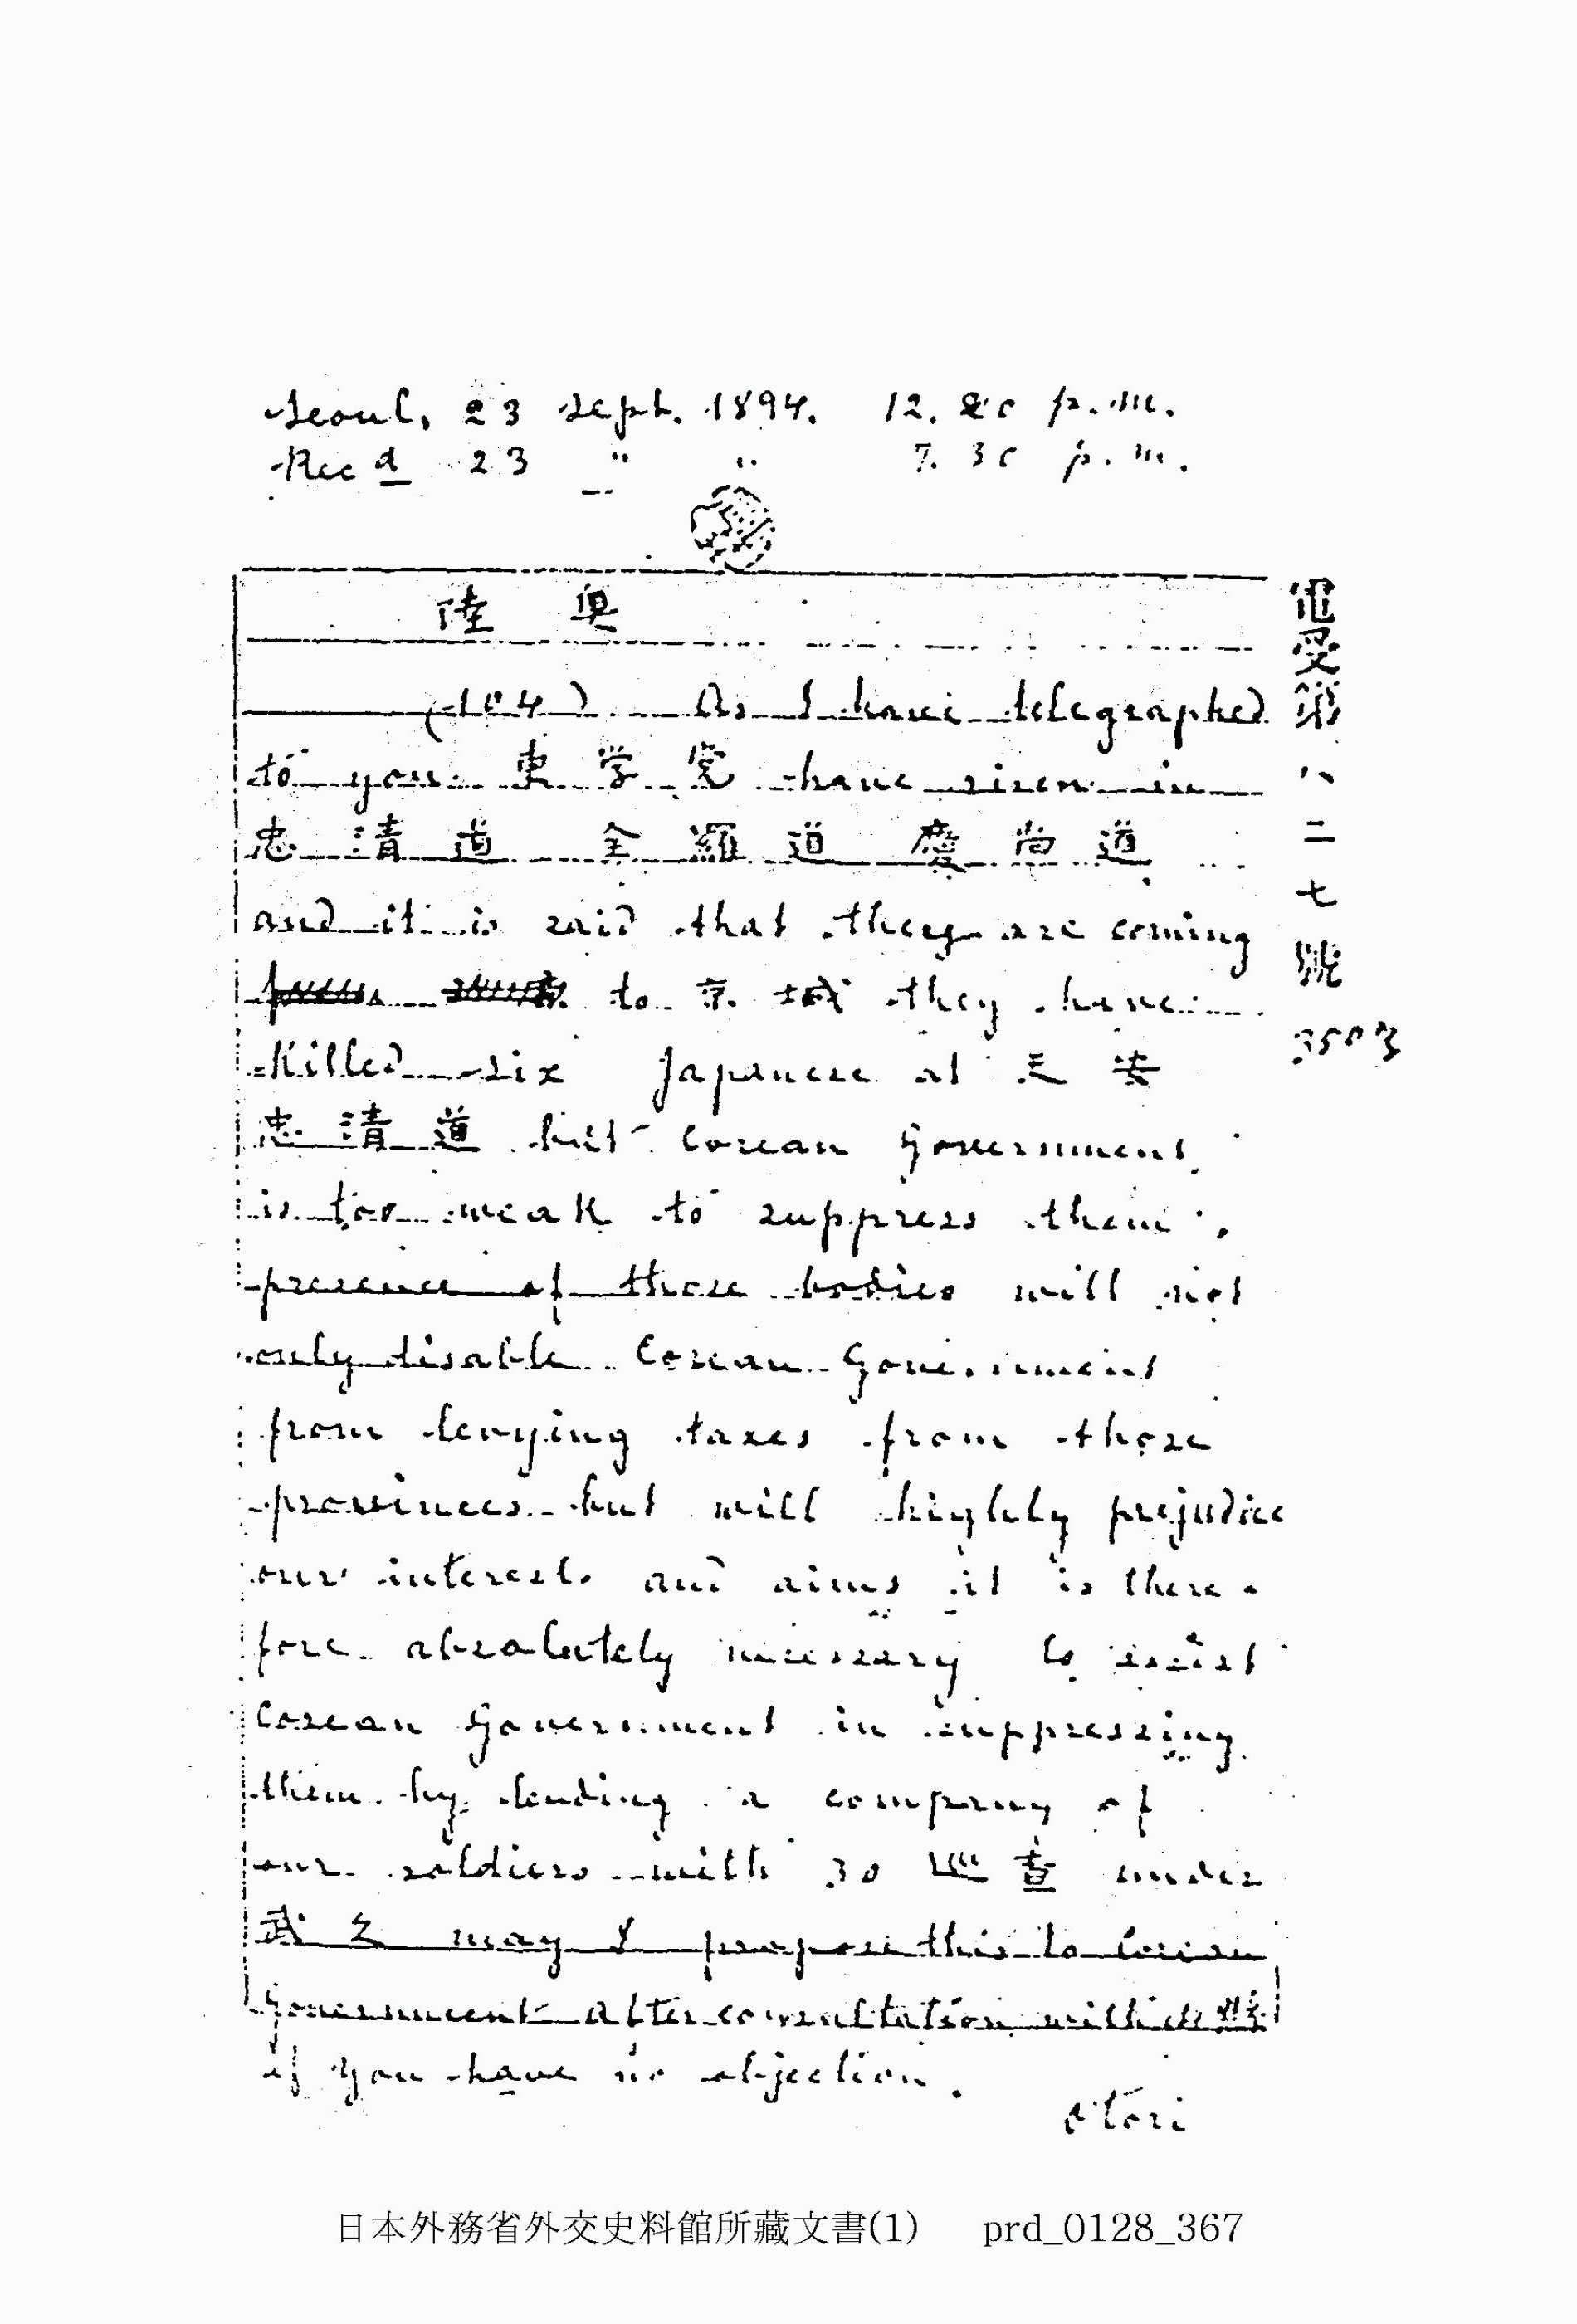 Seoul, 23 Sept. 1894. 12. 20 p.m.
Recd 23 " " 7. 30 p.m.
陸 奥
(104) As I have telegraphed
to you 東学党 have risen in
忠清道 全羅道 慶尚道
and it is said that they are coming
to 京城 they have
killed six Japanese at 天安
忠清道 but Corean Government
is too weak to suppress them,
presence of those bodies will not
only disable Corean Government
from levying taxes from those
provinces but will highly prejudice
our interests and aims it is there-
fore absolutely necessary to assist
Corean Government in suppressing
them by lending a company of
our soldiers with 30 巡査 under
武久 may I propose this to Corean
Government after consultation with
if you have no objection.
Otori
電受第八二七號
350
日本外務省外交史料館所藏文書(1) prd_0128_367